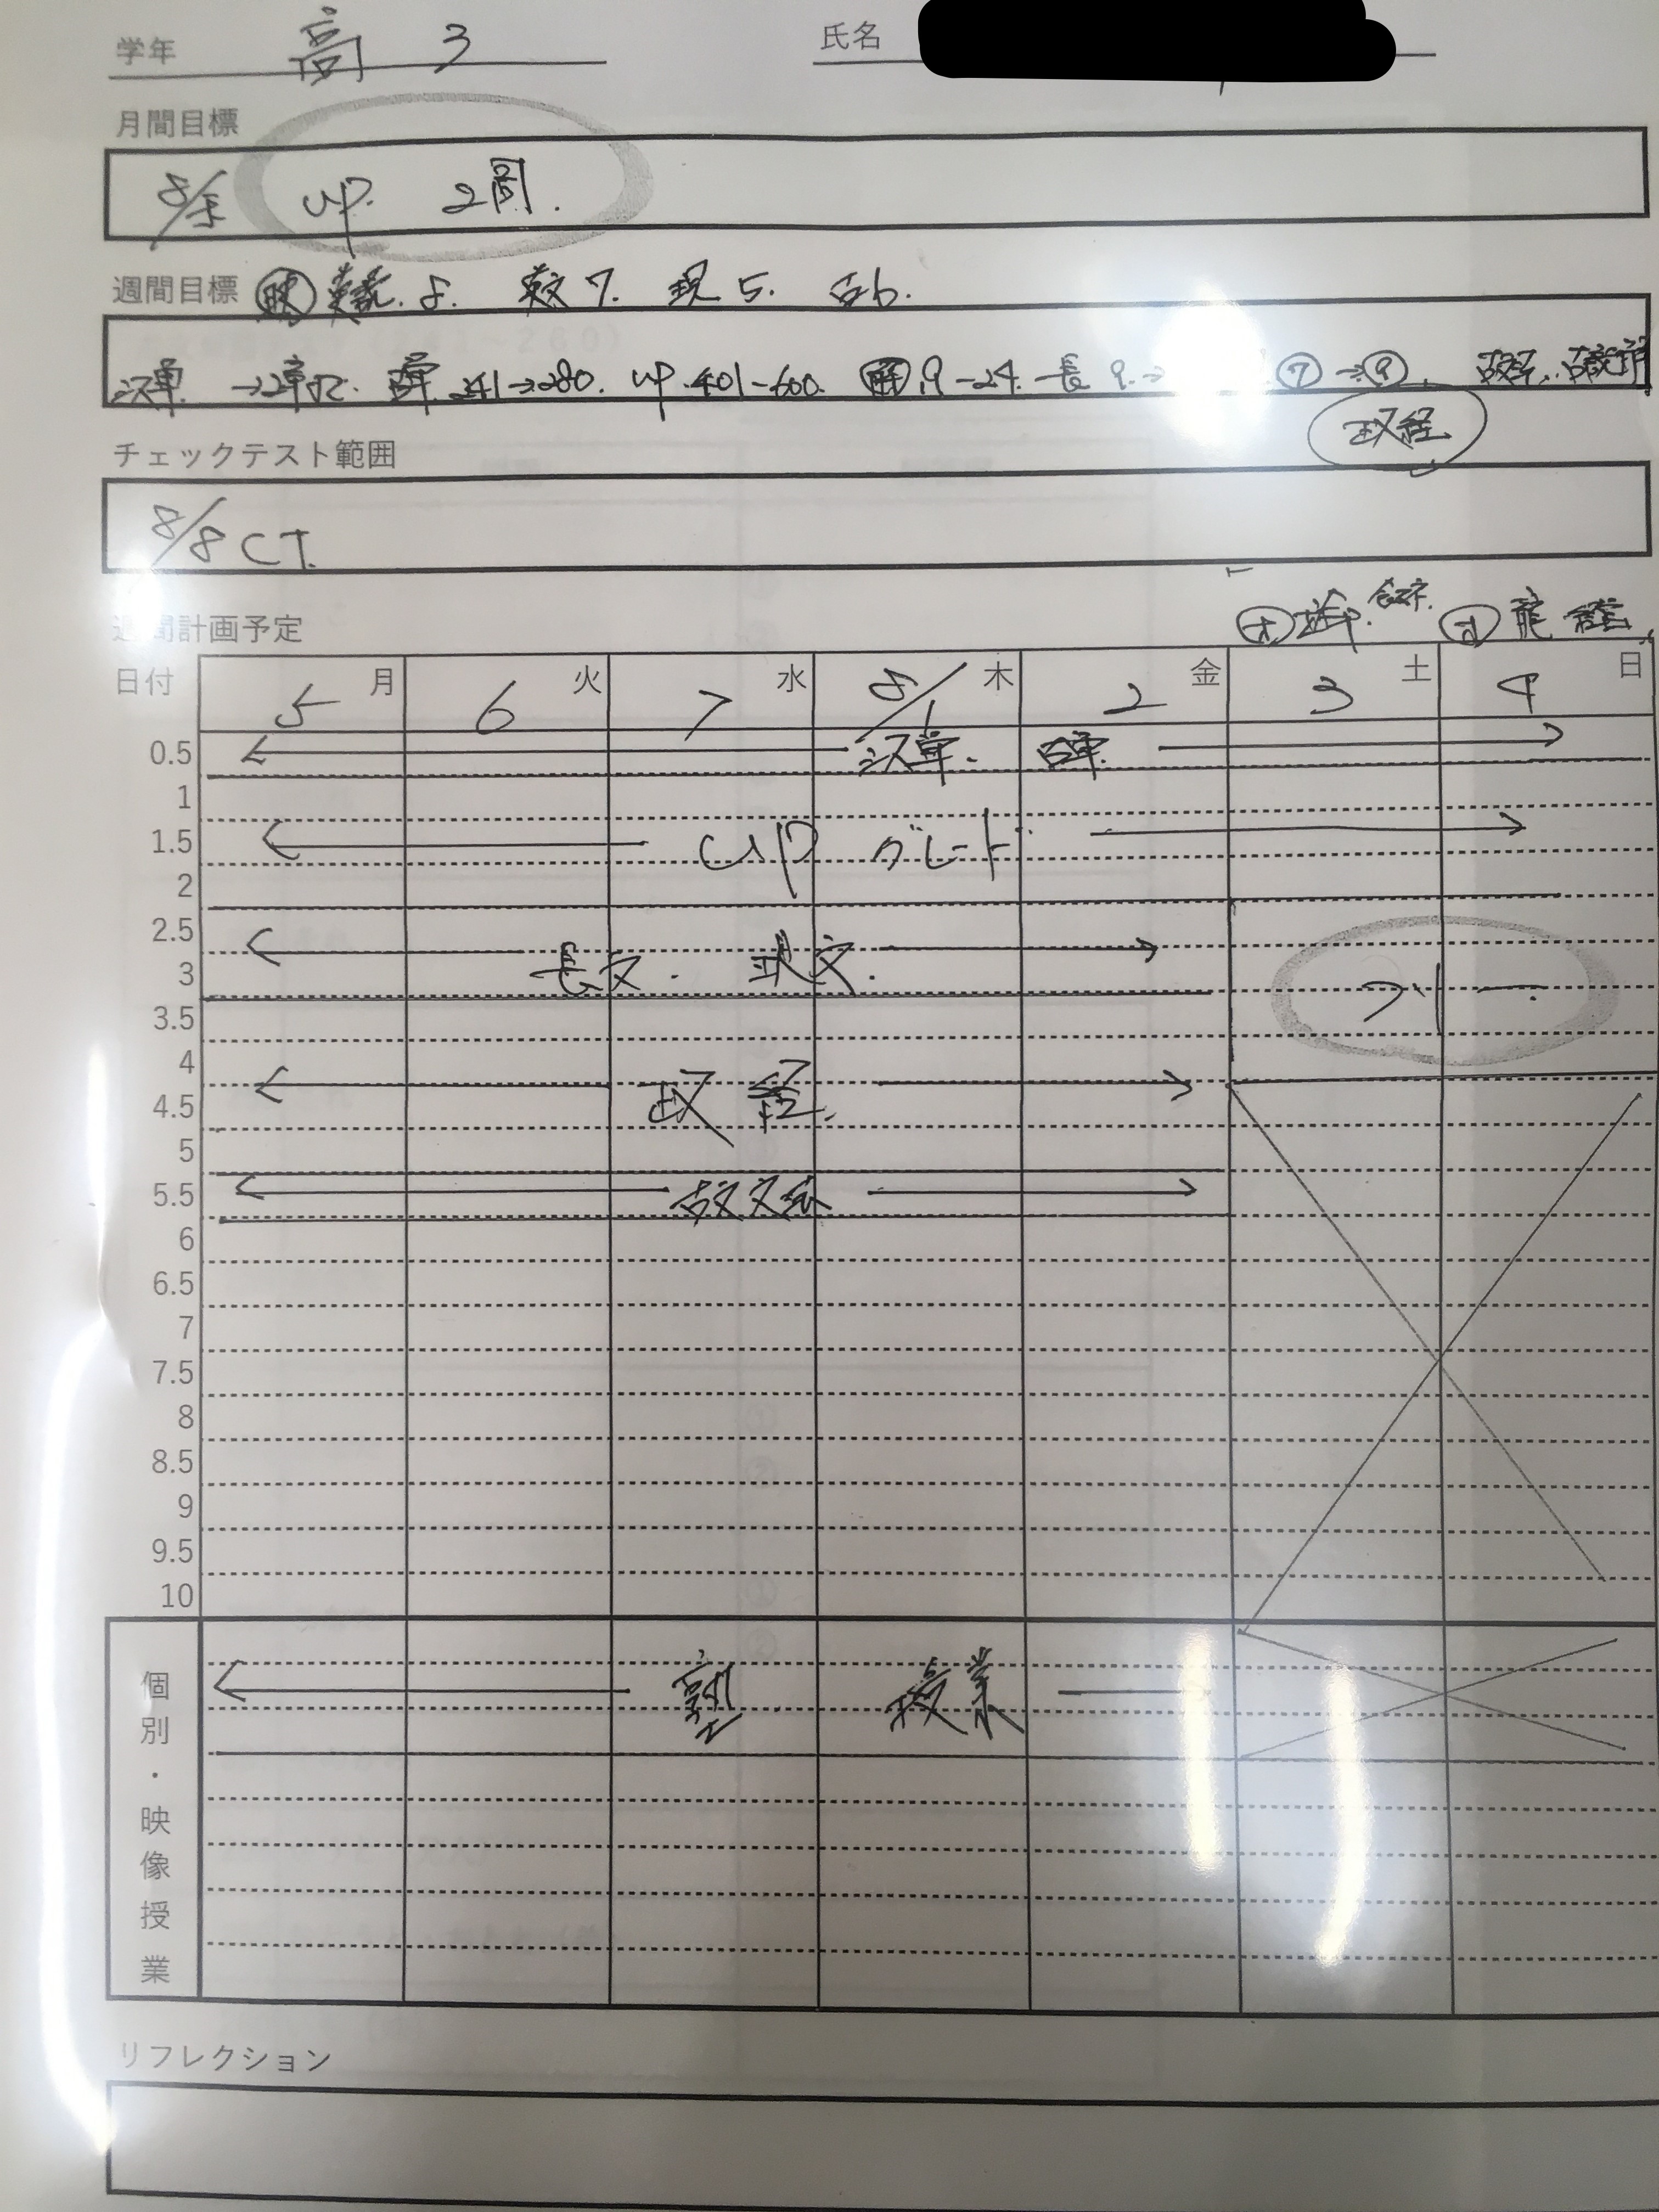 学年 高 3 氏名
月間目標
8/末 UP. 2周.
週間目標 映 英読. 8. 英文 7. 現 5. 古 6.
→2章 241→280. UP. 401-600. 解 9-24. 長 9.→ ⑦→⑨.
政経
チェックテスト範囲
8/8 CT.
週間計画予定
日付 5 月 6 火 7 水 8/1 木 2 金 3 土 4 日
0.5 古単.
1
1.5 UP グレード
2
2.5
3 長文. 現文. フリー
3.5
4
4.5 政経.
5
5.5 古文文法
6
6.5
7
7.5
8
8.5
9
9.5
10
個別・映像授業 塾 授業
リフレクション